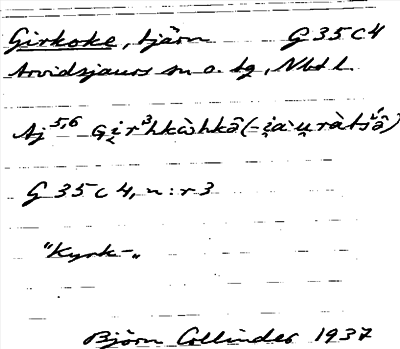 Girkoke, tjärn G 35 C 4
Arvidsjaurs sn o. tg, Nbt l.
Aj 5,6
G 35 c 4, n : r 3
"Kyrk-"
Björn Collinder 1937